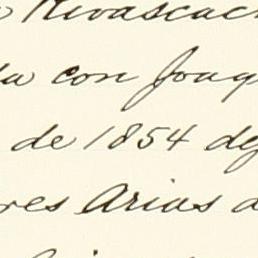 Rivascac
da con Joaq
de 1854 de
res Arias a